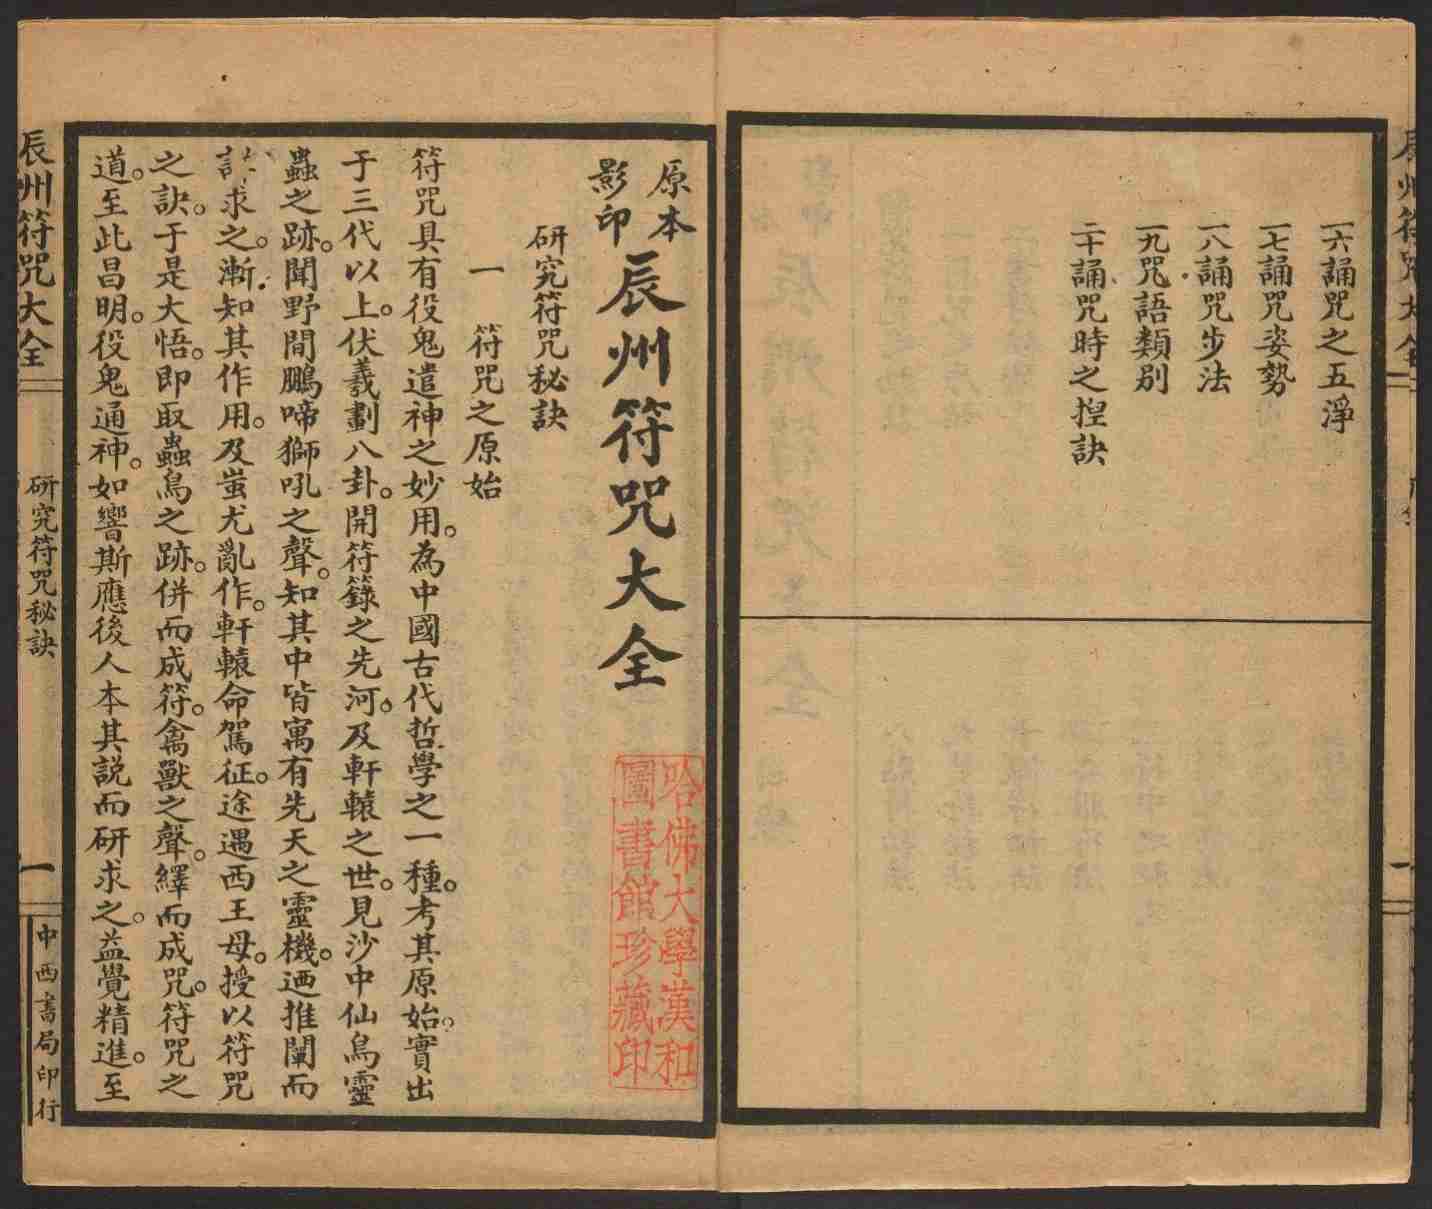 一六誦咒之五淨
一七誦咒姿勢
一八誦咒步法
一九咒語類別
二十誦咒時之揑訣
原本
影印
辰州符咒大全
研究符咒秘訣
一 符咒之原始
符咒具有役鬼遣神之妙用。為中國古代哲學之一種。考其原始。實出
于三代以上。伏羲劃八卦。開符籙之先河。及軒轅之世。見沙中仙鳥靈
蟲之跡。聞野間鵬啼獅吼之聲。知其中皆寓有先天之靈機。迺推闡而
求之。漸知其作用。及蚩尤亂作。軒轅命駕征。途遇西王母。授以符咒
之訣。于是大悟。即取蟲鳥之跡。併而成符。禽獸之聲。繹而成咒。符咒之
道。至此昌明。役鬼通神。如響斯應後人本其說而研求之。益覺精進。至
哈佛大學漢和
圖書館珍藏印
辰州符咒大全
研究符咒秘訣
一
中西書局印行